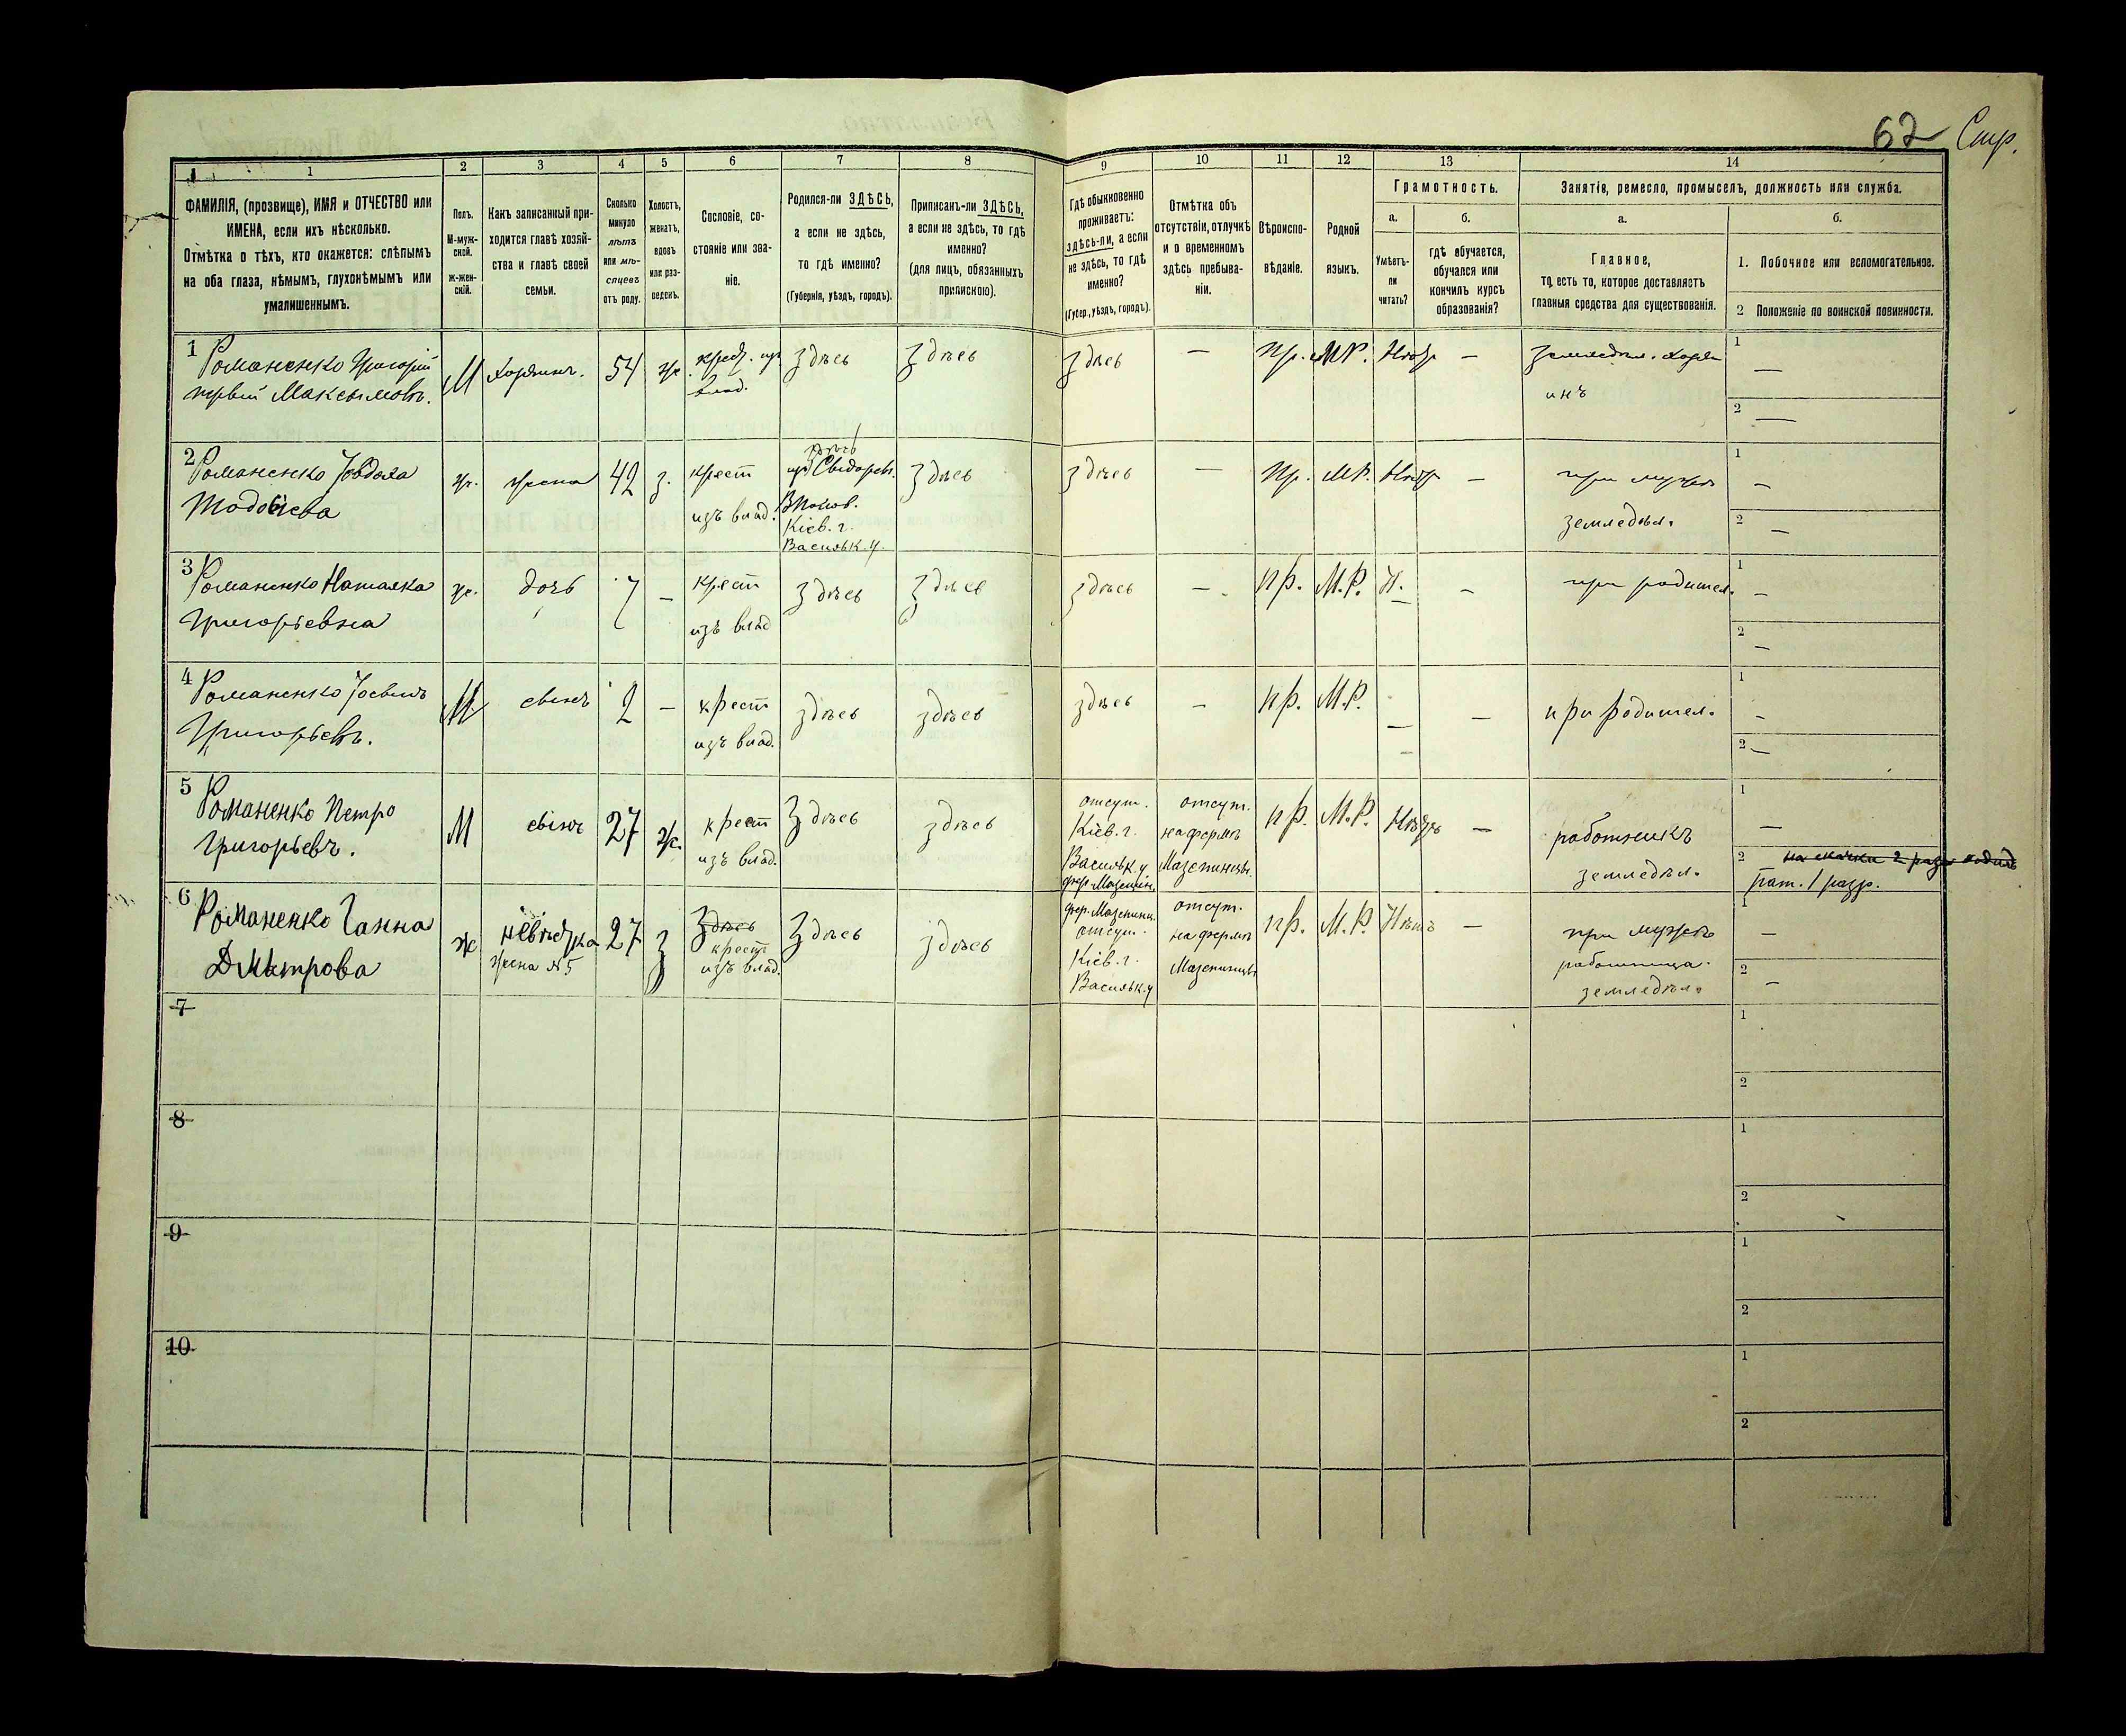 62 Стр.
1 2 3 4 5 6 7 8 9 10 11 12 13 14
ФАМИЛІЯ, (прозвище), ИМЯ и ОТЧЕСТВО или
ИМЕНА, если ихъ нѣсколько.
Отмѣтка о тѣхъ, кто окажется: слѣпымъ
на оба глаза, нѣмымъ, глухонѣмымъ или
умалишеннымъ.
Полъ.
М-муж-
ской.
ж-жен-
скій.
Какъ записанный при-
ходится главѣ хозяй-
ства и главѣ своей
семьи.
Сколько
минуло
лѣтъ
или мѣ-
сяцевъ
отъ роду.
Холостъ,
женатъ,
вдовъ
или раз-
веденъ.
Сословіе, со-
стояніе или зва-
ніе.
Родился-ли ЗДѢСЬ,
а если не здѣсь,
то гдѣ именно?
(Губернія, уѣздъ, городъ).
Приписанъ-ли ЗДѢСЬ,
а если не здѣсь, то гдѣ
именно?
(для лицъ, обязанныхъ
припискою).
Гдѣ обыкновенно
проживаетъ:
здѣсь-ли, а если
не здѣсь, то гдѣ
именно?
(Губер., уѣздъ, городъ).
Отмѣтка объ
отсутствіи, отлучкѣ
и о временномъ
здѣсь пребыва-
ніи.
Вѣроиспо-
вѣданіе.
Родной
языкъ.
Грамотность.
а.
Умѣетъ-
ли
читать?
б.
гдѣ обучается,
обучался или
кончилъ курсъ
образованія?
Занятіе, ремесло, промыселъ, должность или служба.
а.
Главное,
то есть то, которое доставляетъ
главныя средства для существованія.
б.
1. Побочное или вспомогательное.
2 Положеніе по воинской повинности.
1 Романенко Григорій М Хозяинъ. 54 ж. здѣсь здѣсь здѣсь — Пр. М.Р. — 1 —
первый Максымовъ. влад. инъ 2 —
2 Романенко Явдоха ж. жена 42 з. крест здѣсь здѣсь — Пр. М.Р. — при мужѣ 1 —
изъ влад. Кіев. г. землед​ѣл. 2 —
Васильк. у.
3 Романенко Наталка ж. дочь 7 — крест здѣсь здѣсь здѣсь — пр. М.Р. Н. — при родител. 1 —
Григорьевна изъ влад 2 —
4 Романенко М сынъ 2 — крест здѣсь здѣсь здѣсь — пр. М.Р. — — при родител. 1 —
Григорьевъ. изъ влад. 2 —
5 Романенко Петро М сынъ 27 ж. крест здѣсь здѣсь отсут. отсут. пр. М.Р. — работникъ 1 —
Григорьевъ. изъ влад. Кіев. г. на фермѣ земледѣл. 2
Васильк. у. Мазепинцы. рат. 1 разр.
фер. Мазепин.
6 Романенко Ганна ж невѣстка 27 з здѣсь здѣсь здѣсь фер. Мазепинц. отсут. пр. М.Р. Нѣтъ — при мужѣ 1 —
Дмытрова жена №5 крест отсут. на фермѣ работница. 2 —
изъ влад. Кіев. г. Мазепинцы земледѣл.
Васильк. у
7 1
2
8 1
2
9 1
2
10 1
2